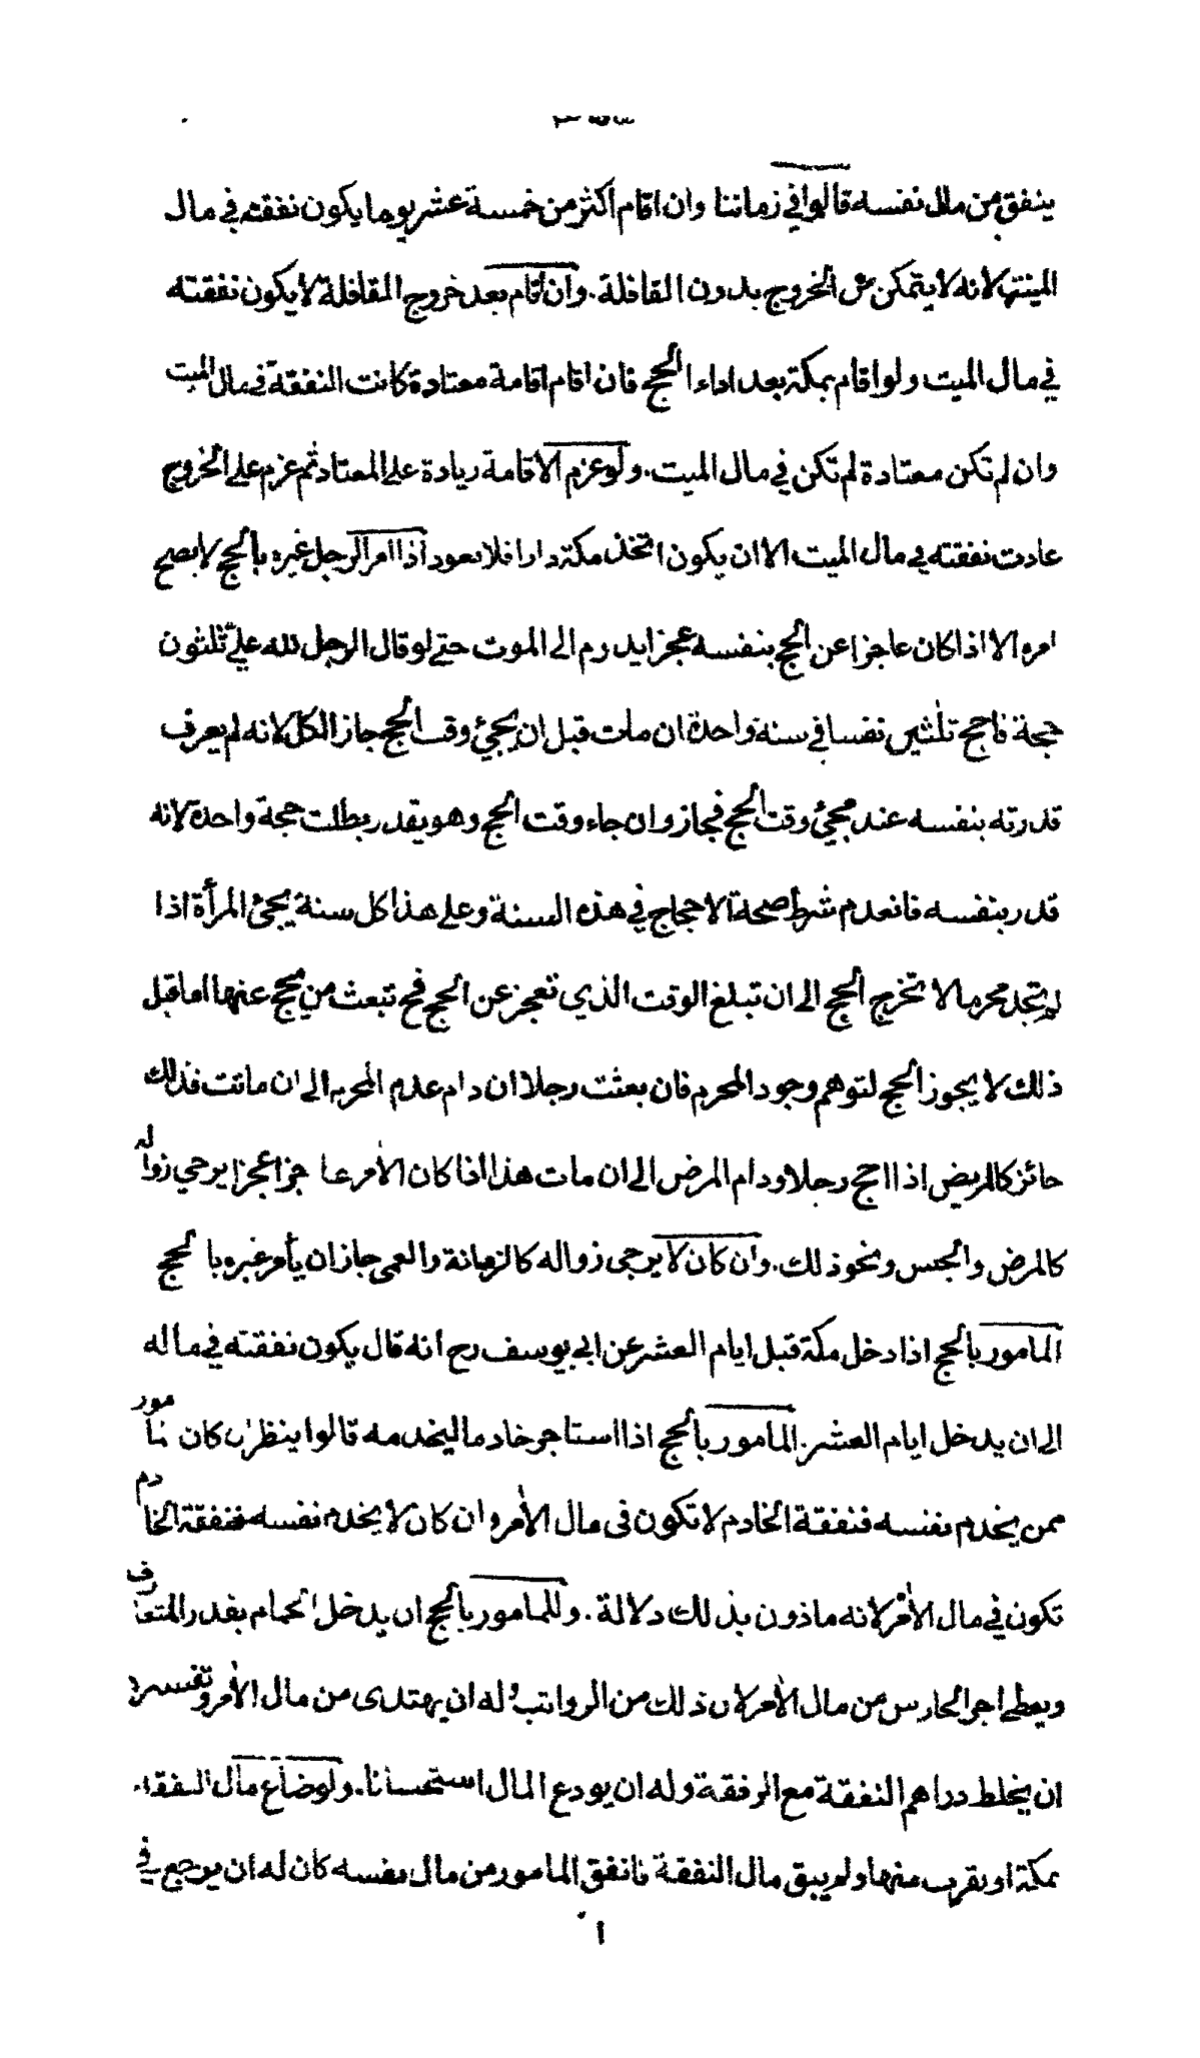 ٣٥٣
ينفق من مال نفسه قالوا في زماننا وان اقام اكثر من خمسة عشر يوما يكون نفقته في مال
الميت لانه لا يتمكن من الخروج بدون القافلة. وان اقام بعد خروج القافلة لا يكون نفقته
في مال الميت ولو اقام بمكة بعد اداء الحج فان اقام اقامة معتادة كانت النفقة في مال الميت
وان لم تكن معتادة لم تكن في مال الميت. ولو عزم الاقامة زيادة على المعتاد ثم عزم على الخروج
عادت نفقته في مال الميت الا ان يكون اتخذ مكة دارا فلا يعود اذا امر الرجل غيره بالحج لا يصح
امره الا اذا كان عاجزا عن الحج بنفسه عجزا يدوم الى الموت حتى لو قال الرجل لله عليّ ثلثون
حجة فاحج ثلثين نفسا في سنة واحدة ان مات قبل ان يجيئ وقت الحج جاز الكل لانه لم يعرف
قدرته بنفسه عند مجيئ وقت الحج فجاز وان جاء وقت الحج وهو يقدر بطلت حجة واحدة لانه
قدر بنفسه فانعدم شرط صحة الاحجاج في هذه السنة وعلى هذا كل سنة يجيئ المرأة اذا
لم تجد محرما لا تخرج الحج الى ان تبلغ الوقت الذي تعجز عن الحج فح تبعث من يحج عنها اما قبل
ذلك لا يجوز الحج لتوهم وجود المحرم فان بعثت رجلا ان دام عدم المحرم الى ان ماتت فذلك
جائز كالمريض اذا احج رجلا ودام المرض الى ان مات هذا اذا كان الآمر عاجزا عجزا يرجي زواله
كالمرض والحبس ونحو ذلك. وان كان لا يرجى زواله كالزمانة والعمى جاز ان يأمر غيره بالحج
المامور بالحج اذا دخل مكة قبل ايام العشر عن ابي يوسف رح انه قال يكون نفقته في ماله
الى ان يدخل ايام العشر. المامور بالحج اذا استاجر خادما ليخدمه قالوا ينظر ان كان مامور
ممن يخدم نفسه فنفقة الخادم لا تكون في مال الآمر وان كان لا يخدم نفسه فنفقة الخادم
تكون في مال الآمر لانه ماذون بذلك دلالة. وللمامور بالحج ان يدخل الحمام بقدر المتعارف
ويعطي اجر الحارس من مال الآمر لان ذلك من الرواتب وله ان يهتدى من مال الآمر وتفسيره
ان يخلط دراهم النفقة مع الرفقة وله ان يودع المال استحسانا. ولو ضاع مال النفقة
بمكة او بقرب منها ولم يبق مال النفقة فانفق المامور من مال نفسه كان له ان يرجع في